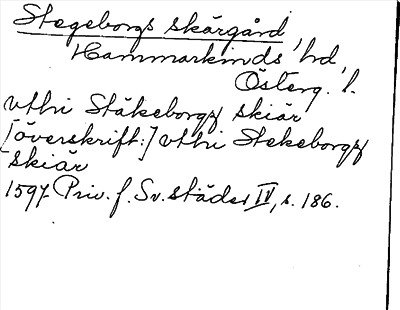 Stegeborgs skärgård,
Hammarkinds hd,
Österg. l.
vthi Stäkeborgz skiär
[överskrift:] vthi Stekeborgz
skiär
1597 Priv. f. Sv. städer IV, s. 186.